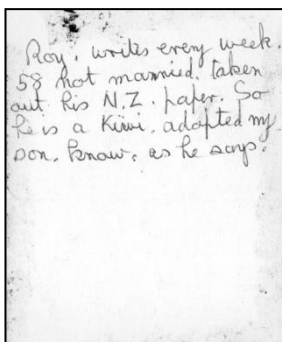 Roy, writes every week.
58 not married. taken
out his N.Z. paper. So
he is a Kiwi. adopted my
son. know. as he says.